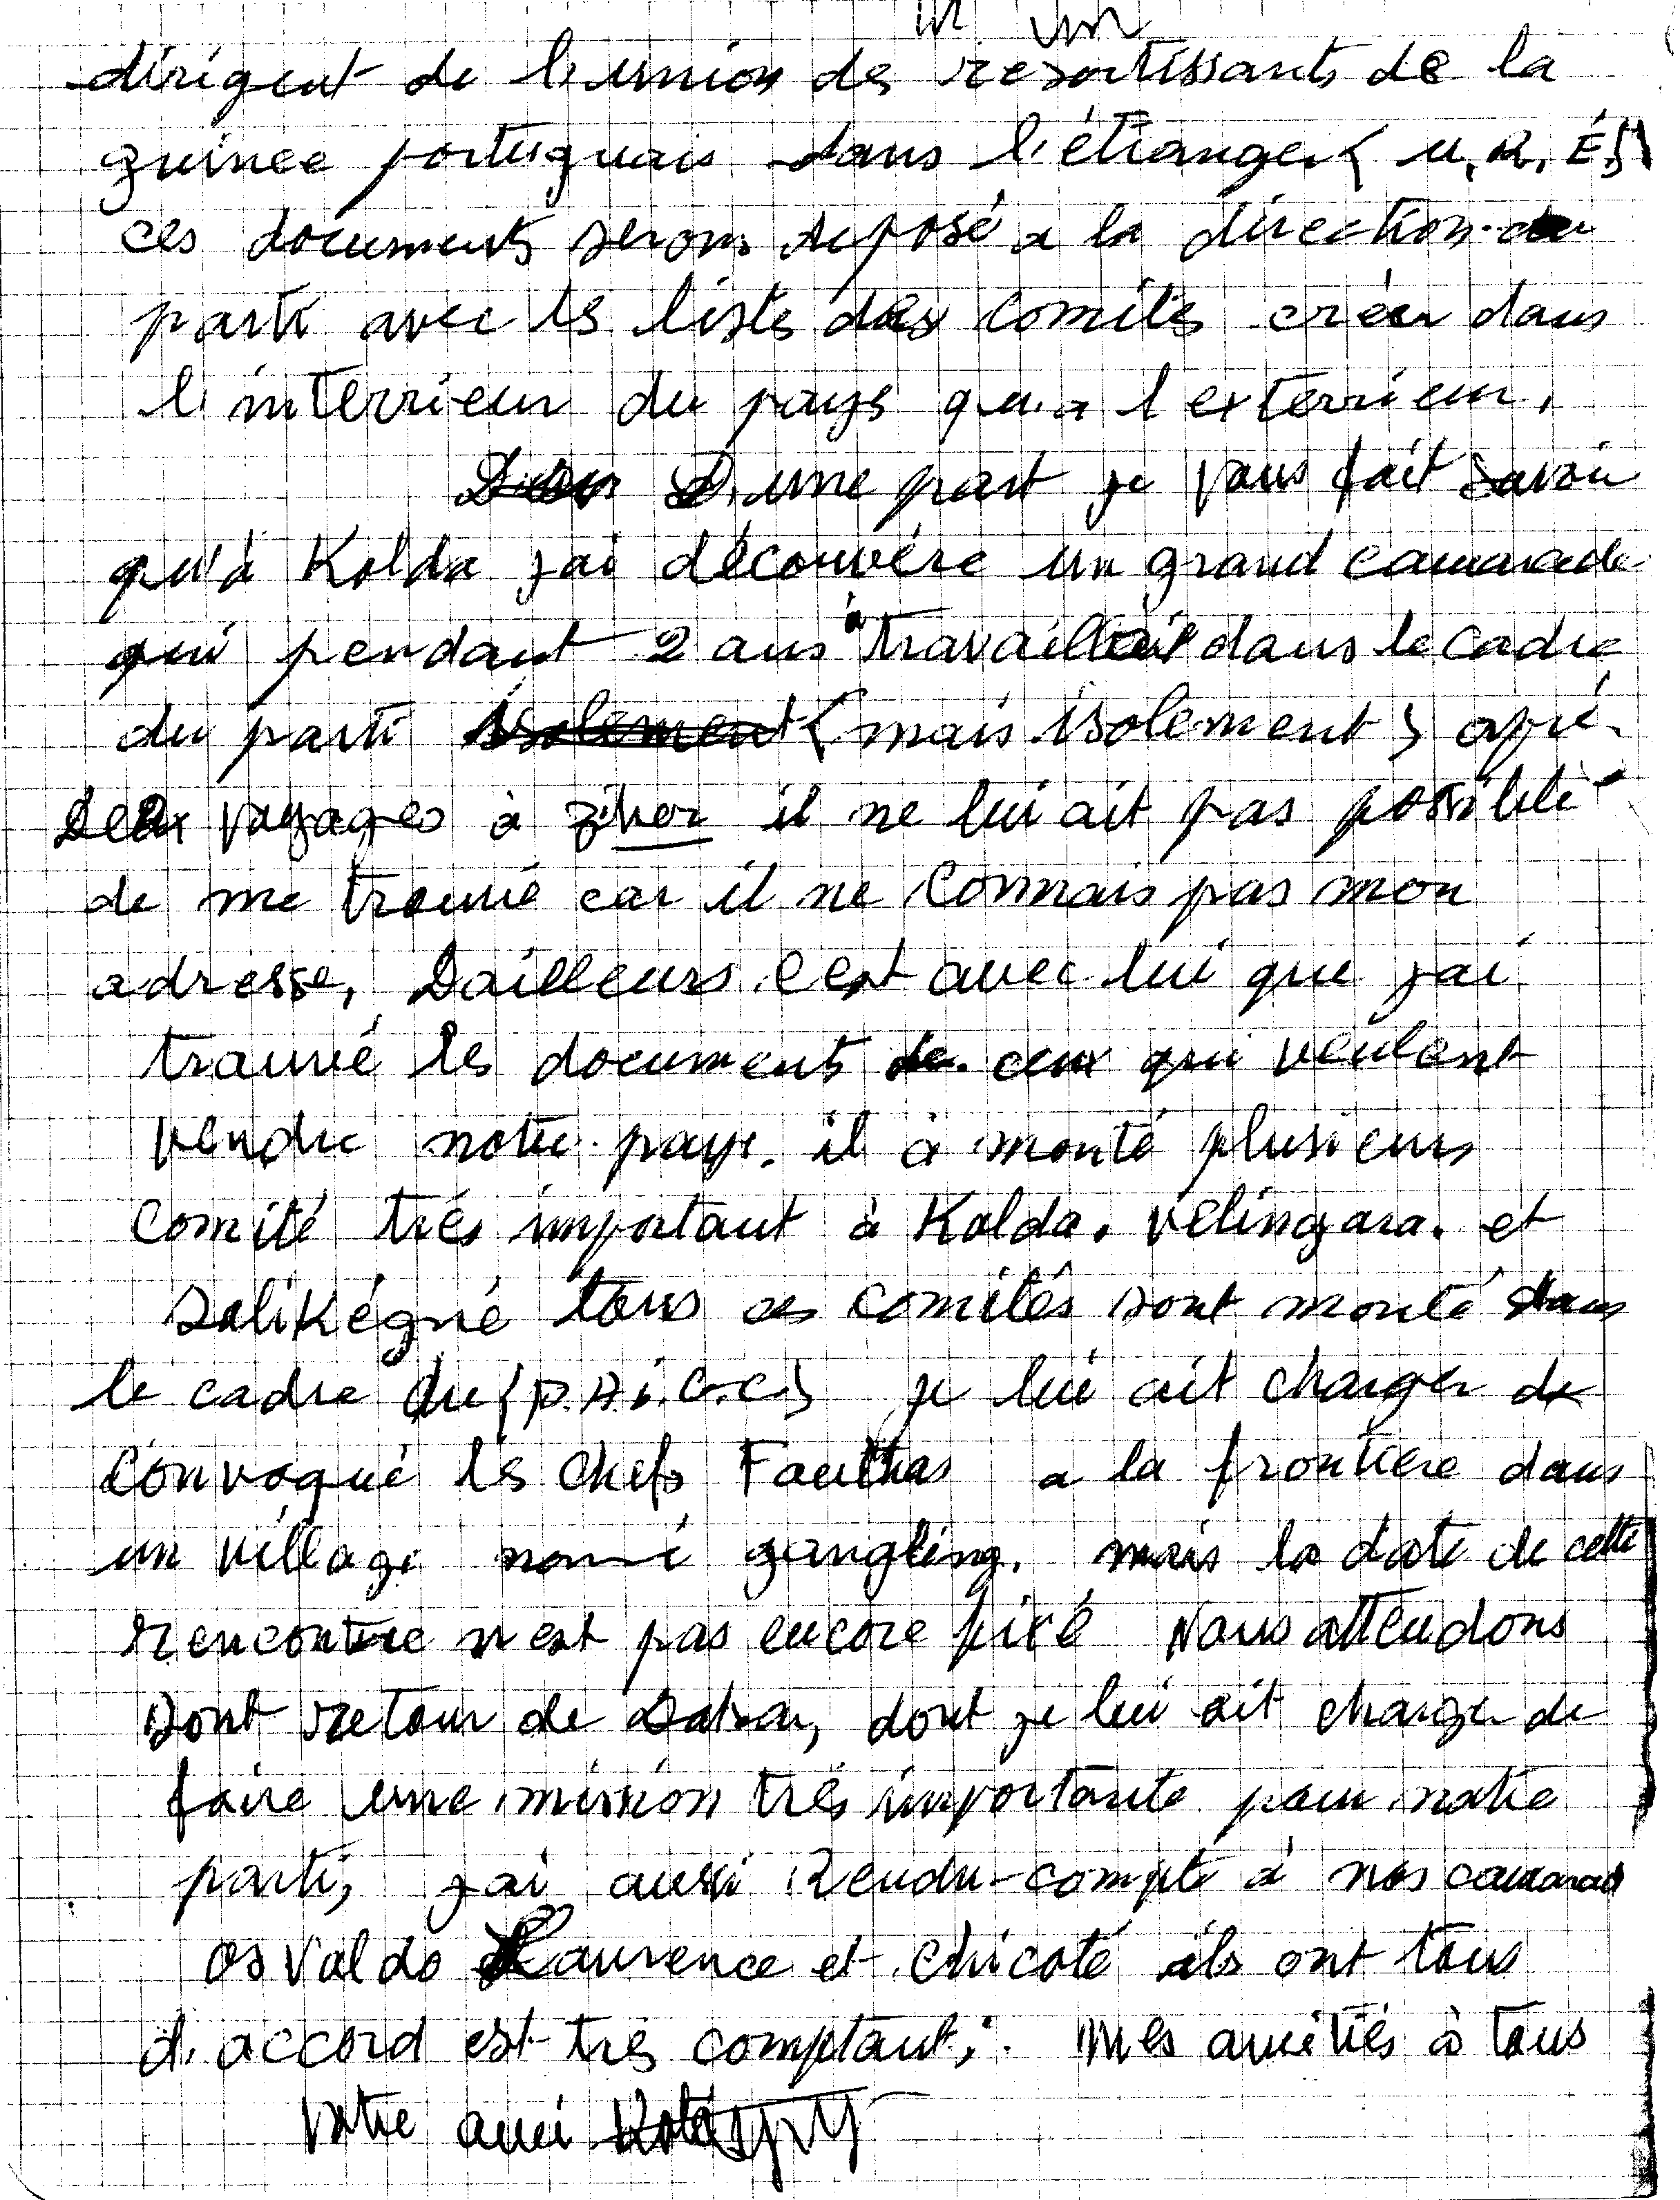 dirigent de l'union des resortissants de la
guinee portuguais dans l'étranger ( U.R.É.)
ces documents serons deposé a la direction du
parti avec les liste des comités créer dans
l'interrieur du pays qu'a l'exterrieur.
D'une part je vous fait savoir
qu'à Kolda j'ai découvère un grand camarade
qui pendant 2 ans à travaillait dans le cadre
du parti isolement (mais isolement) apré.
Deux voyages à zihor il ne lui ait pas possiblé
de me trouvé car il ne connais pas mon
adresse, Dailleurs c'est avec lui que j'ai
trouvé les documents de ceux qui veulent
vendre notre pays. il à monté plusieurs
Comité trés important à Kolda. vélingara. et
Salikégné tous ces comités sont monté dans
le cadre du (P.A.i.G.C) je lui ait charger de
convoqué les chefs Fauthas a la frontière dans
un village nomé gangling. mais la date de cette
rencontre n'est pas encore fixé Nous attendons
Sont retour de Dakar, dont je lui ait charger de
faire une mission trés importante pour notre
parti, j'ai aussi Rendu-compte à nos camarad
osvaldo Laurence et chicoté ils ont tous
d'accord est trés comptant,. Mes amitiés à tous
Votre ami